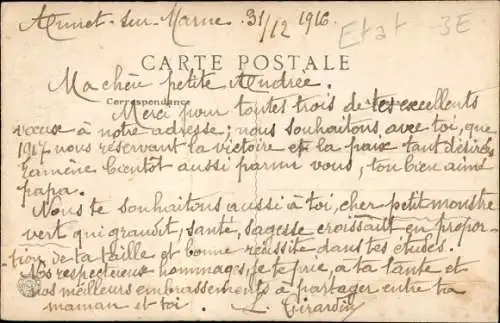 Annet-sur-Marne 31/12 1916
Etat 3E
CARTE POSTALE
Ma chère petite Andrée.
Correspondance
Merci pour toutes trois de tes excellents
vœux à notre adresse; nous souhaitons, avec toi, que
1917 nous réservant la victoire et la paix tant désirées
ramène bientôt aussi parmi vous, ton bien aimé
papa.
Nous te souhaitons aussi à toi, cher petit monstre
vert qui grandit, santé, sagesse croissant en propor-
tion de ta taille et bonne réussite dans tes études!
Nos respectueux hommages, je te prie, à ta tante et
nos meilleurs embrassements à partager entre ta
maman et toi. L. Girardin